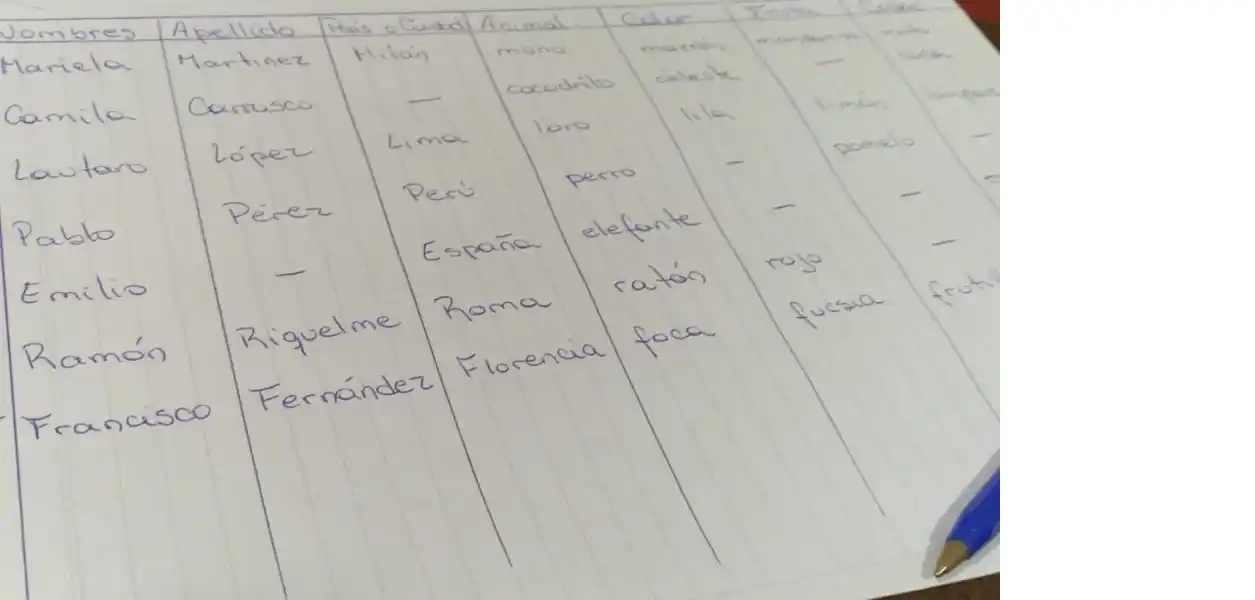 Nombres Apellido País o Ciudad Animal Color Fruta
Mariela Martinez Milán mono marrón mandarina
Camila Carrusco — cocodrilo celeste —
Lautaro López Lima loro lila limón
Pablo Pérez Perú perro — pomelo —
Emilio — España elefante — —
Ramón Riquelme Roma ratón rojo —
Francisco Fernández Florencia foca fucsia